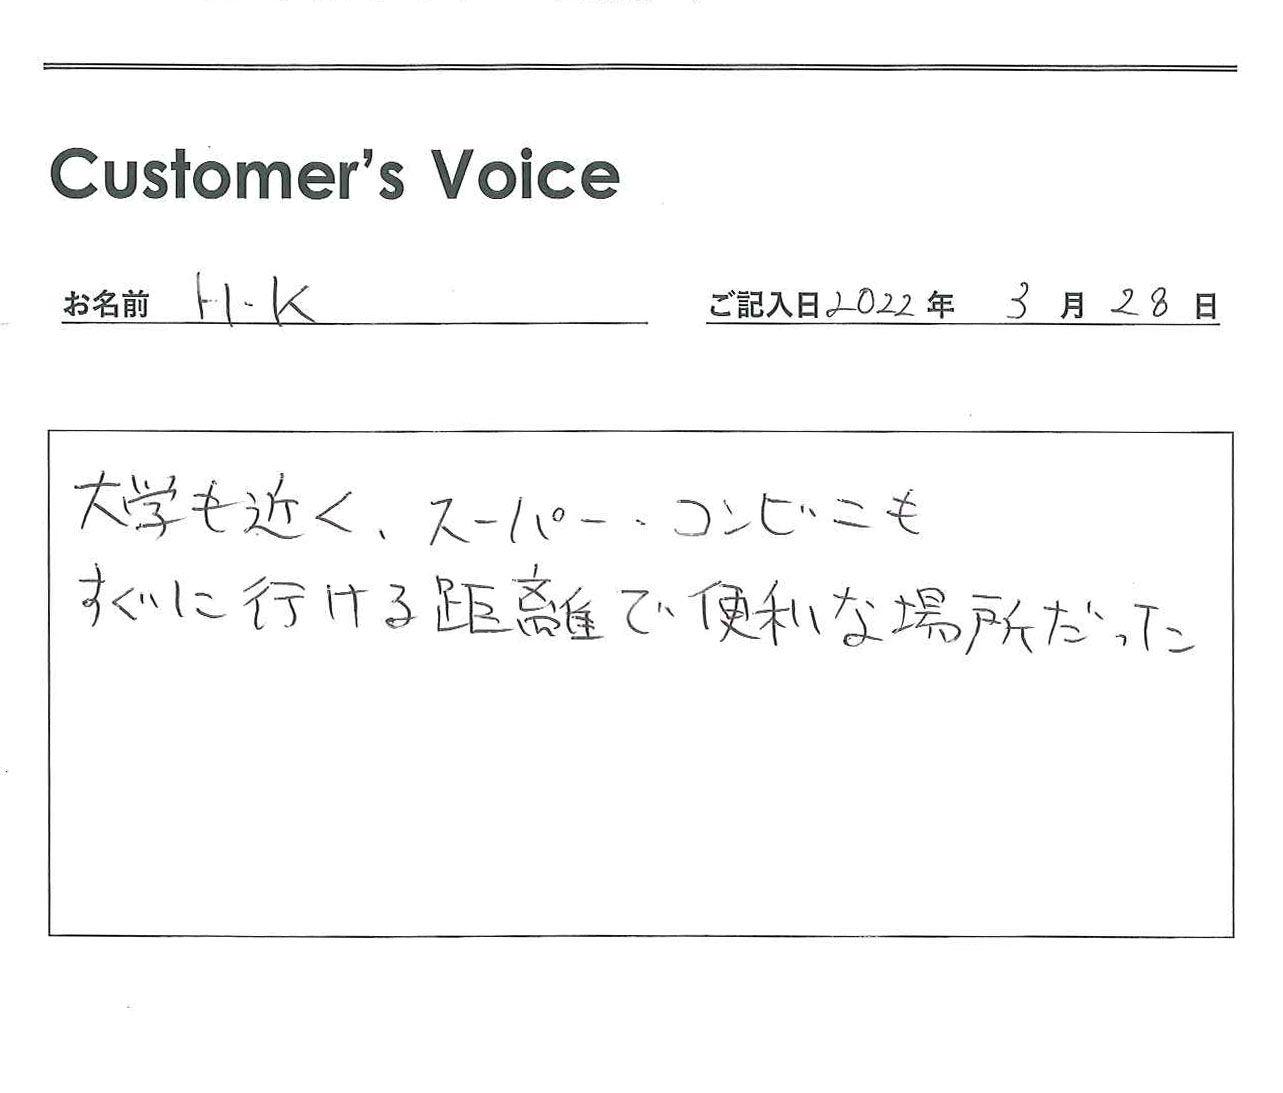 Customer's Voice
お名前 H・K
ご記入日 2022 年 3 月 28 日
大学も近く、スーパー・コンビニも
すぐに行ける距離で便利な場所だった